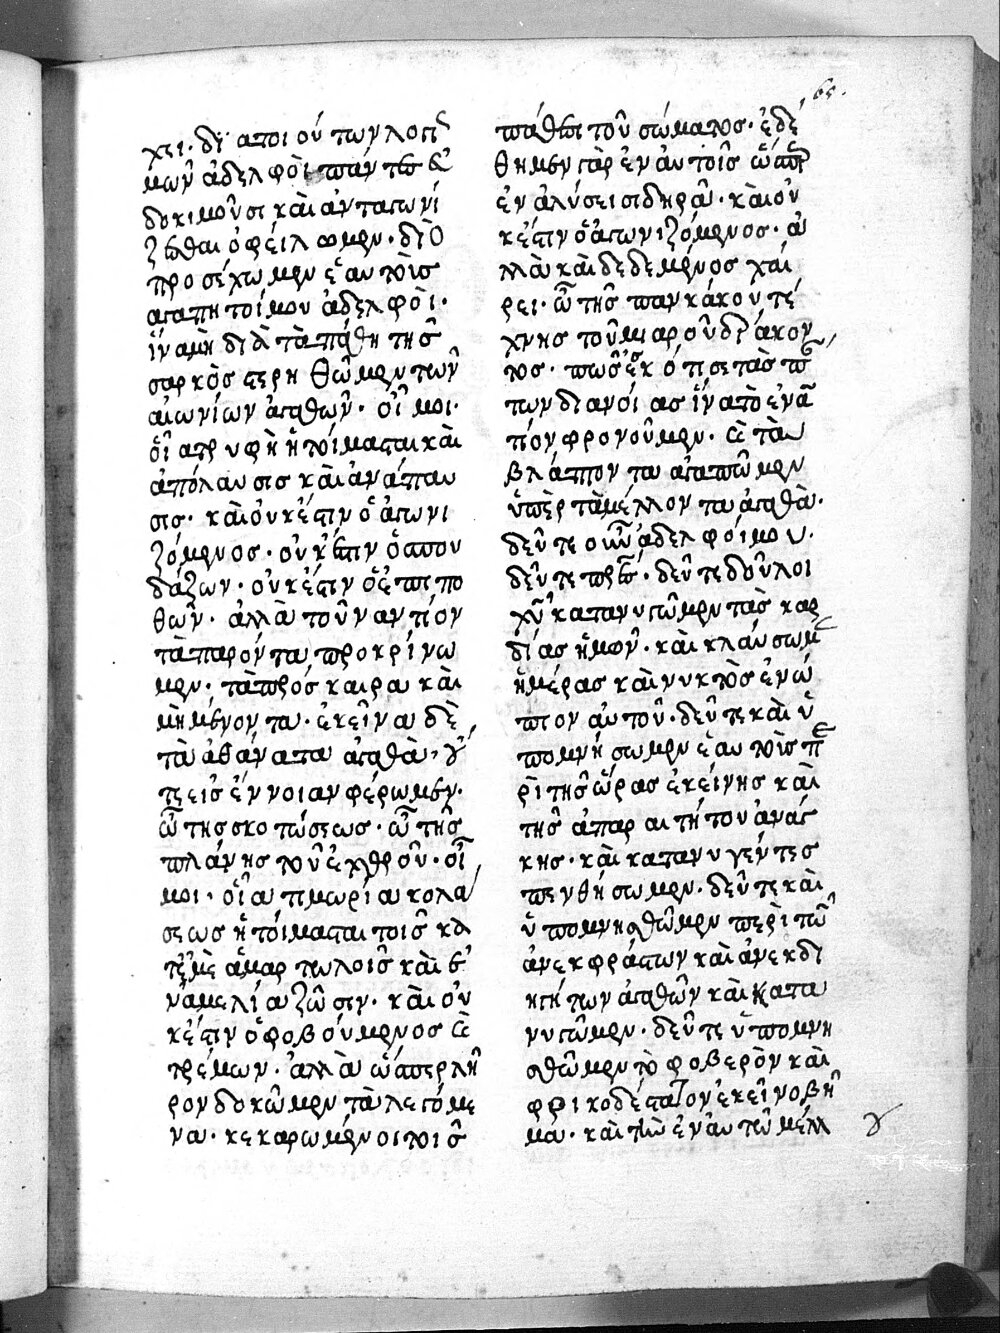 65.
χει· δι᾿ ἁποιοῦ τῶν λογι
μῶν ἀδελφοὶ πάντες εὐ
δοκιμοῦσι καὶ ἀνταγωνί
ζεσθαι ὀφείλωμεν· διὸ
προσέχωμεν ἑαυτοῖς
ἀγαπητοί μου ἀδελφοί·
ἵνα μὴ διὰ τὰ πάθη τῆς
σαρκὸς στερηθῶμεν τῶν
αἰωνίων ἀγαθῶν· οἴμοι·
οἵα τρυφὴ ἡτοίμασται καὶ
ἀπόλαυσις καὶ ἀνάπαυ
σις· καὶ οὐκέστιν ὁ ἀγωνι
ζόμενος· οὐκέστιν ὁ σπου
δάζων· οὐκέστιν ὁ ἐπιπο
θῶν· ἀλλὰ τοὐναντίον
τὰ παρόντα προκρίνω
μεν· τὰ πρόσκαιρα καὶ
μὴ μένοντα· ἐκεῖνα δὲ
τὰ ἀθάνατα ἀγαθὰ, οὐ
τε εἰς ἔννοιαν φέρωμεν·
ὢ τῆς σκοτώσεως· ὢ τῆς
πλάνης τοῦ ἐχθροῦ· οἴ
μοι· οἵα τιμωρία κολά
σεως ἡτοίμασται τοῖς κα
τ᾿ ἐμὲ ἁμαρτωλοῖς καὶ ἐ
ν ἀμελία ζῶσιν· καὶ οὐ
κέστιν ὁ φοβούμενος καὶ
τρέμων· ἀλλὰ ὥσπερ λῆ
ρον δοκῶμεν τὰ λεγόμε
να· κεκαρωμένοι τοῖς
πάθεσι τοῦ σώματος· ἐδέ
θημεν γὰρ ἐν αὐτοῖς ὥσπερ
ἐν ἁλύσει σιδηρᾶ· καὶ οὐ
κέστιν ὁ ἀγωνιζόμενος· ἀ
λλὰ καὶ δεδεμένος χαί
ρει· ὢ τῆς πανκάκου τέ
χνης τοῦ μιαροῦ δράκον
τος· πῶς ἐσκότισε τὰς τού
των διανοίας ἵνα τὸ ἐνα
ντίον φρονοῦμεν· καὶ τὰ
βλάπτοντα ἀγαπῶμεν
ὑπὲρ τὰ μέλλοντα ἀγαθά·
δεῦτε οὖν ἀδελφοί μου·
δεῦτε πατέρες· δεῦτε δοῦλοι
χυ κατανυγῶμεν τὰς καρ
δίας ἡμῶν· καὶ κλαύσωμεν
ἡμέρας καὶ νυκτὸς ἐνώ
πιον αὐτοῦ· δεῦτε καὶ ὑ
πομνήσωμεν ἑαυτοῖς πε
ρὶ τῆς ὥρας ἐκείνης καὶ
τῆς ἀπαραιτήτου ἀνάγ
κης· καὶ κατανυγέντες
πενθήσωμεν· δεῦτε καὶ
ὑπομνησθῶμεν περὶ τῶν
ἀνεκφράστων καὶ ἀνεκδι
ηγήτων ἀγαθῶν καὶ κατα
νυγῶμεν· δεῦτε ὑπομνη
σθῶμεν τὸ φοβερὸν καὶ
φρικοδέστατον ἐκεῖνο βῆ
μα· καὶ τὴν ἐν αὐτῶ μέλλ